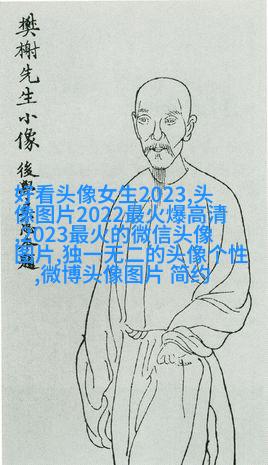 樊榭先生小像
後學
好看头像女生2023,头
像图片2022最火爆高清
,2023最火的微信头像
图片,独一无二的头像个性
,微博头像图片 简约